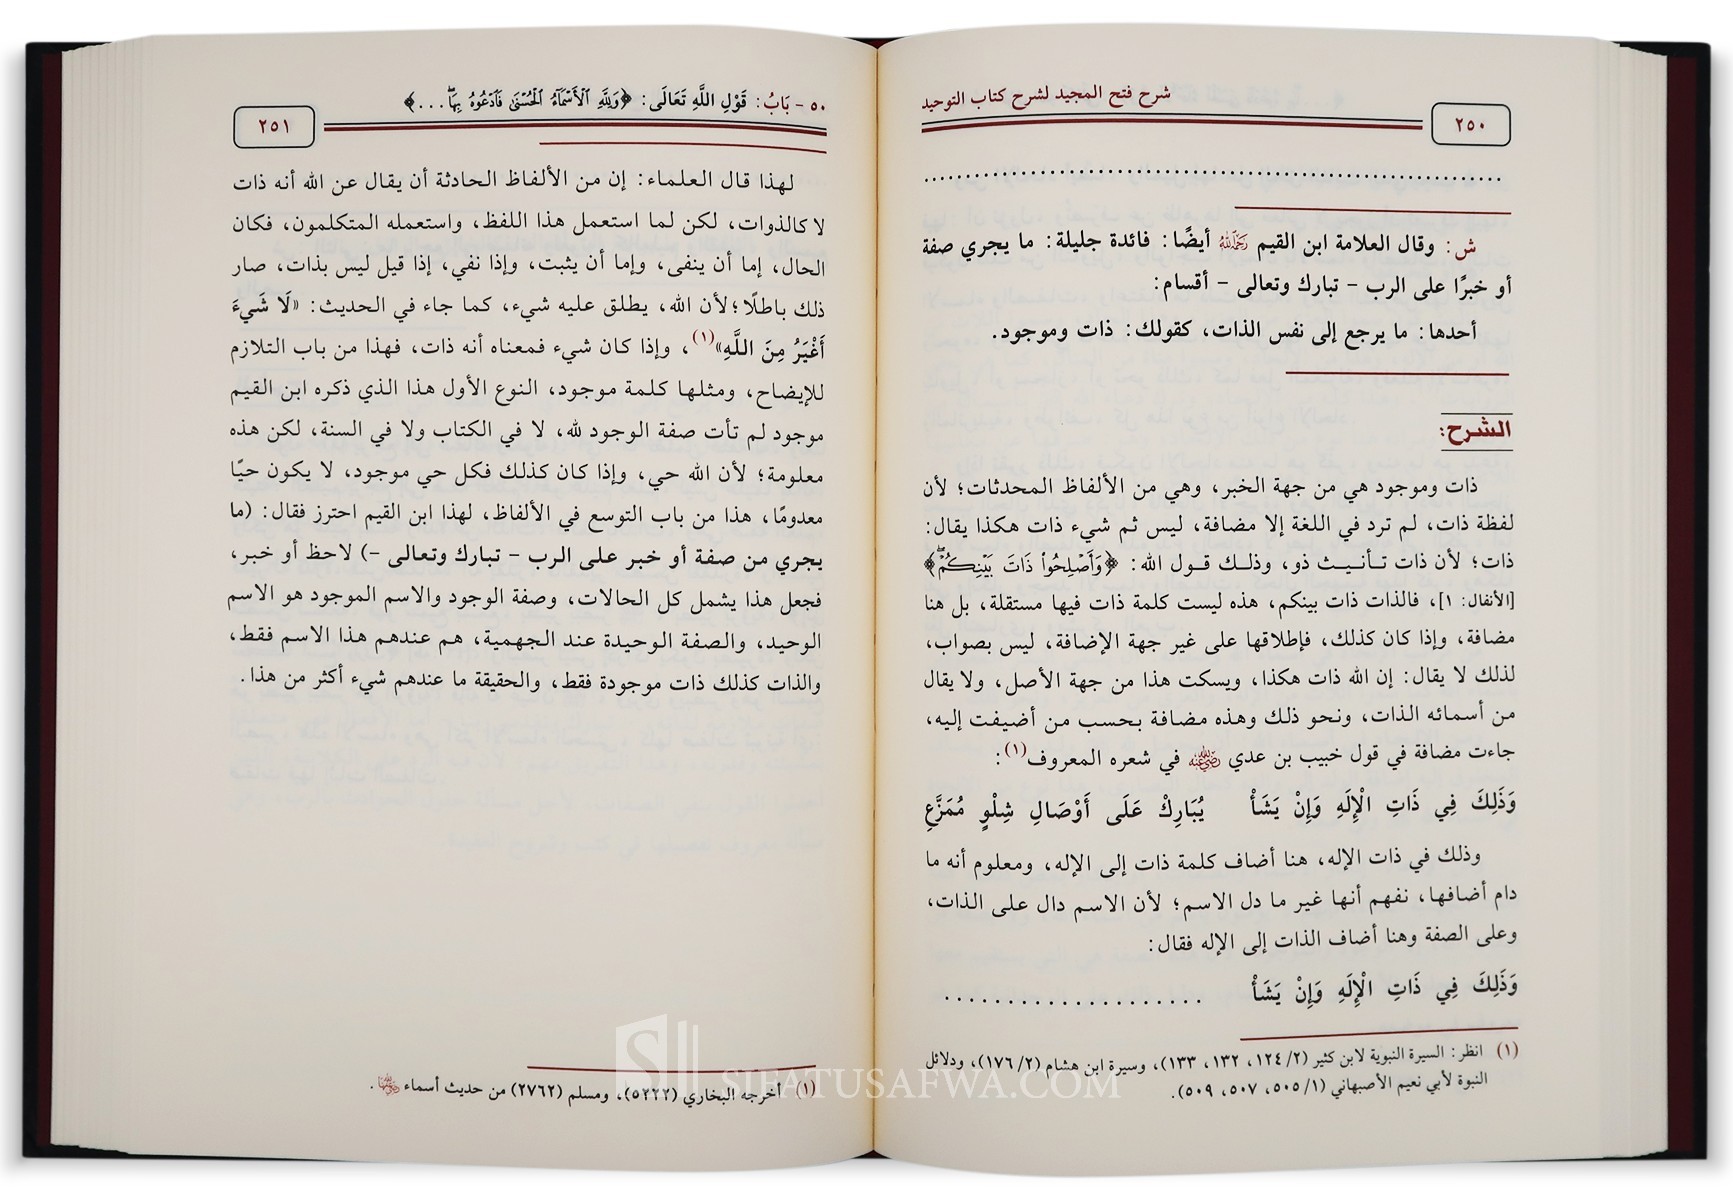 شرح فتح المجيد لشرح كتاب التوحيد
٢٥٠
ش: وقال العلامة ابن القيم رَحِمَهُ اللَّهُ أيضًا: فائدة جليلة: ما يجري صفة
أو خبرًا على الرب - تبارك وتعالى - أقسام:
أحدها: ما يرجع إلى نفس الذات، كقولك: ذات وموجود.
الشرح:
ذات وموجود هي من جهة الخبر، وهي من الألفاظ المحدثات؛ لأن
لفظة ذات، لم ترد في اللغة إلا مضافة، ليس ثم شيء ذات هكذا يقال:
ذات؛ لأن ذات تأنيث ذو، وذلك قول الله: ﴿وَأَصْلِحُوا۟ ذَاتَ بَيْنِكُمْ﴾
[الأنفال: ١]، فالذات ذات بينكم، هذه ليست كلمة ذات فيها مستقلة، بل هنا
مضافة، وإذا كان كذلك، فإطلاقها على غير جهة الإضافة، ليس بصواب،
لذلك لا يقال: إن الله ذات هكذا، ويسكت هذا من جهة الأصل، ولا يقال
من أسمائه الذات، ونحو ذلك وهذه مضافة بحسب من أضيفت إليه،
جاءت مضافة في قول خبيب بن عدي رضي الله عنه في شعره المعروف(١):
وَذَلِكَ فِي ذَاتِ الْإِلَهِ وَإِنْ يَشَأْ يُبَارِكْ عَلَى أَوْصَالِ شِلْوٍ مُمَزَّعِ
وذلك في ذات الإله، هنا أضاف كلمة ذات إلى الإله، ومعلوم أنه ما
دام أضافها، نفهم أنها غير ما دل الاسم؛ لأن الاسم دال على الذات،
وعلى الصفة وهنا أضاف الذات إلى الإله فقال:
وَذَلِكَ فِي ذَاتِ الْإِلَهِ وَإِنْ يَشَأْ ....................
(١) انظر: السيرة النبوية لابن كثير (٢/ ١٢٤، ١٣٢، ١٣٣)، وسيرة ابن هشام (٢/ ١٧٦)، ودلائل
النبوة لأبي نعيم الأصبهاني (١/ ٥٠٥، ٥٠٧، ٥٠٩).
٥٠ - بَابُ: قَوْلِ اللَّهِ تَعَالَى: ﴿وَلِلَّهِ الْأَسْمَاءُ الْحُسْنَى فَادْعُوهُ بِهَا...﴾
٢٥١
لهذا قال العلماء: إن من الألفاظ الحادثة أن يقال عن الله أنه ذات
لا كالذوات، لكن لما استعمل هذا اللفظ، واستعمله المتكلمون، فكان
الحال، إما أن ينفى، وإما أن يثبت، وإذا نفي، إذا قيل ليس بذات، صار
ذلك باطلًا؛ لأن الله، يطلق عليه شيء، كما جاء في الحديث: «لَا شَيْءَ
أَغْيَرُ مِنَ اللَّهِ»(١)، وإذا كان شيء فمعناه أنه ذات، فهذا من باب التلازم
للإيضاح، ومثلها كلمة موجود، النوع الأول هذا الذي ذكره ابن القيم
موجود لم تأت صفة الوجود لله، لا في الكتاب ولا في السنة، لكن هذه
معلومة؛ لأن الله حي، وإذا كان كذلك فكل حي موجود، لا يكون حيًا
معدومًا، هذا من باب التوسع في الألفاظ، لهذا ابن القيم احترز فقال: (ما
يجري من صفة أو خبر على الرب - تبارك وتعالى -) لاحظ أو خبر،
فجعل هذا يشمل كل الحالات، وصفة الوجود والاسم الموجود هو الاسم
الوحيد، والصفة الوحيدة عند الجهمية، هم عندهم هذا الاسم فقط،
والذات كذلك ذات موجودة فقط، والحقيقة ما عندهم شيء أكثر من هذا.
(١) أخرجه البخاري (٥٢٢٢)، ومسلم (٢٧٦٢) من حديث أسماء رضي الله عنها.
SIFATUSAFWA.COM